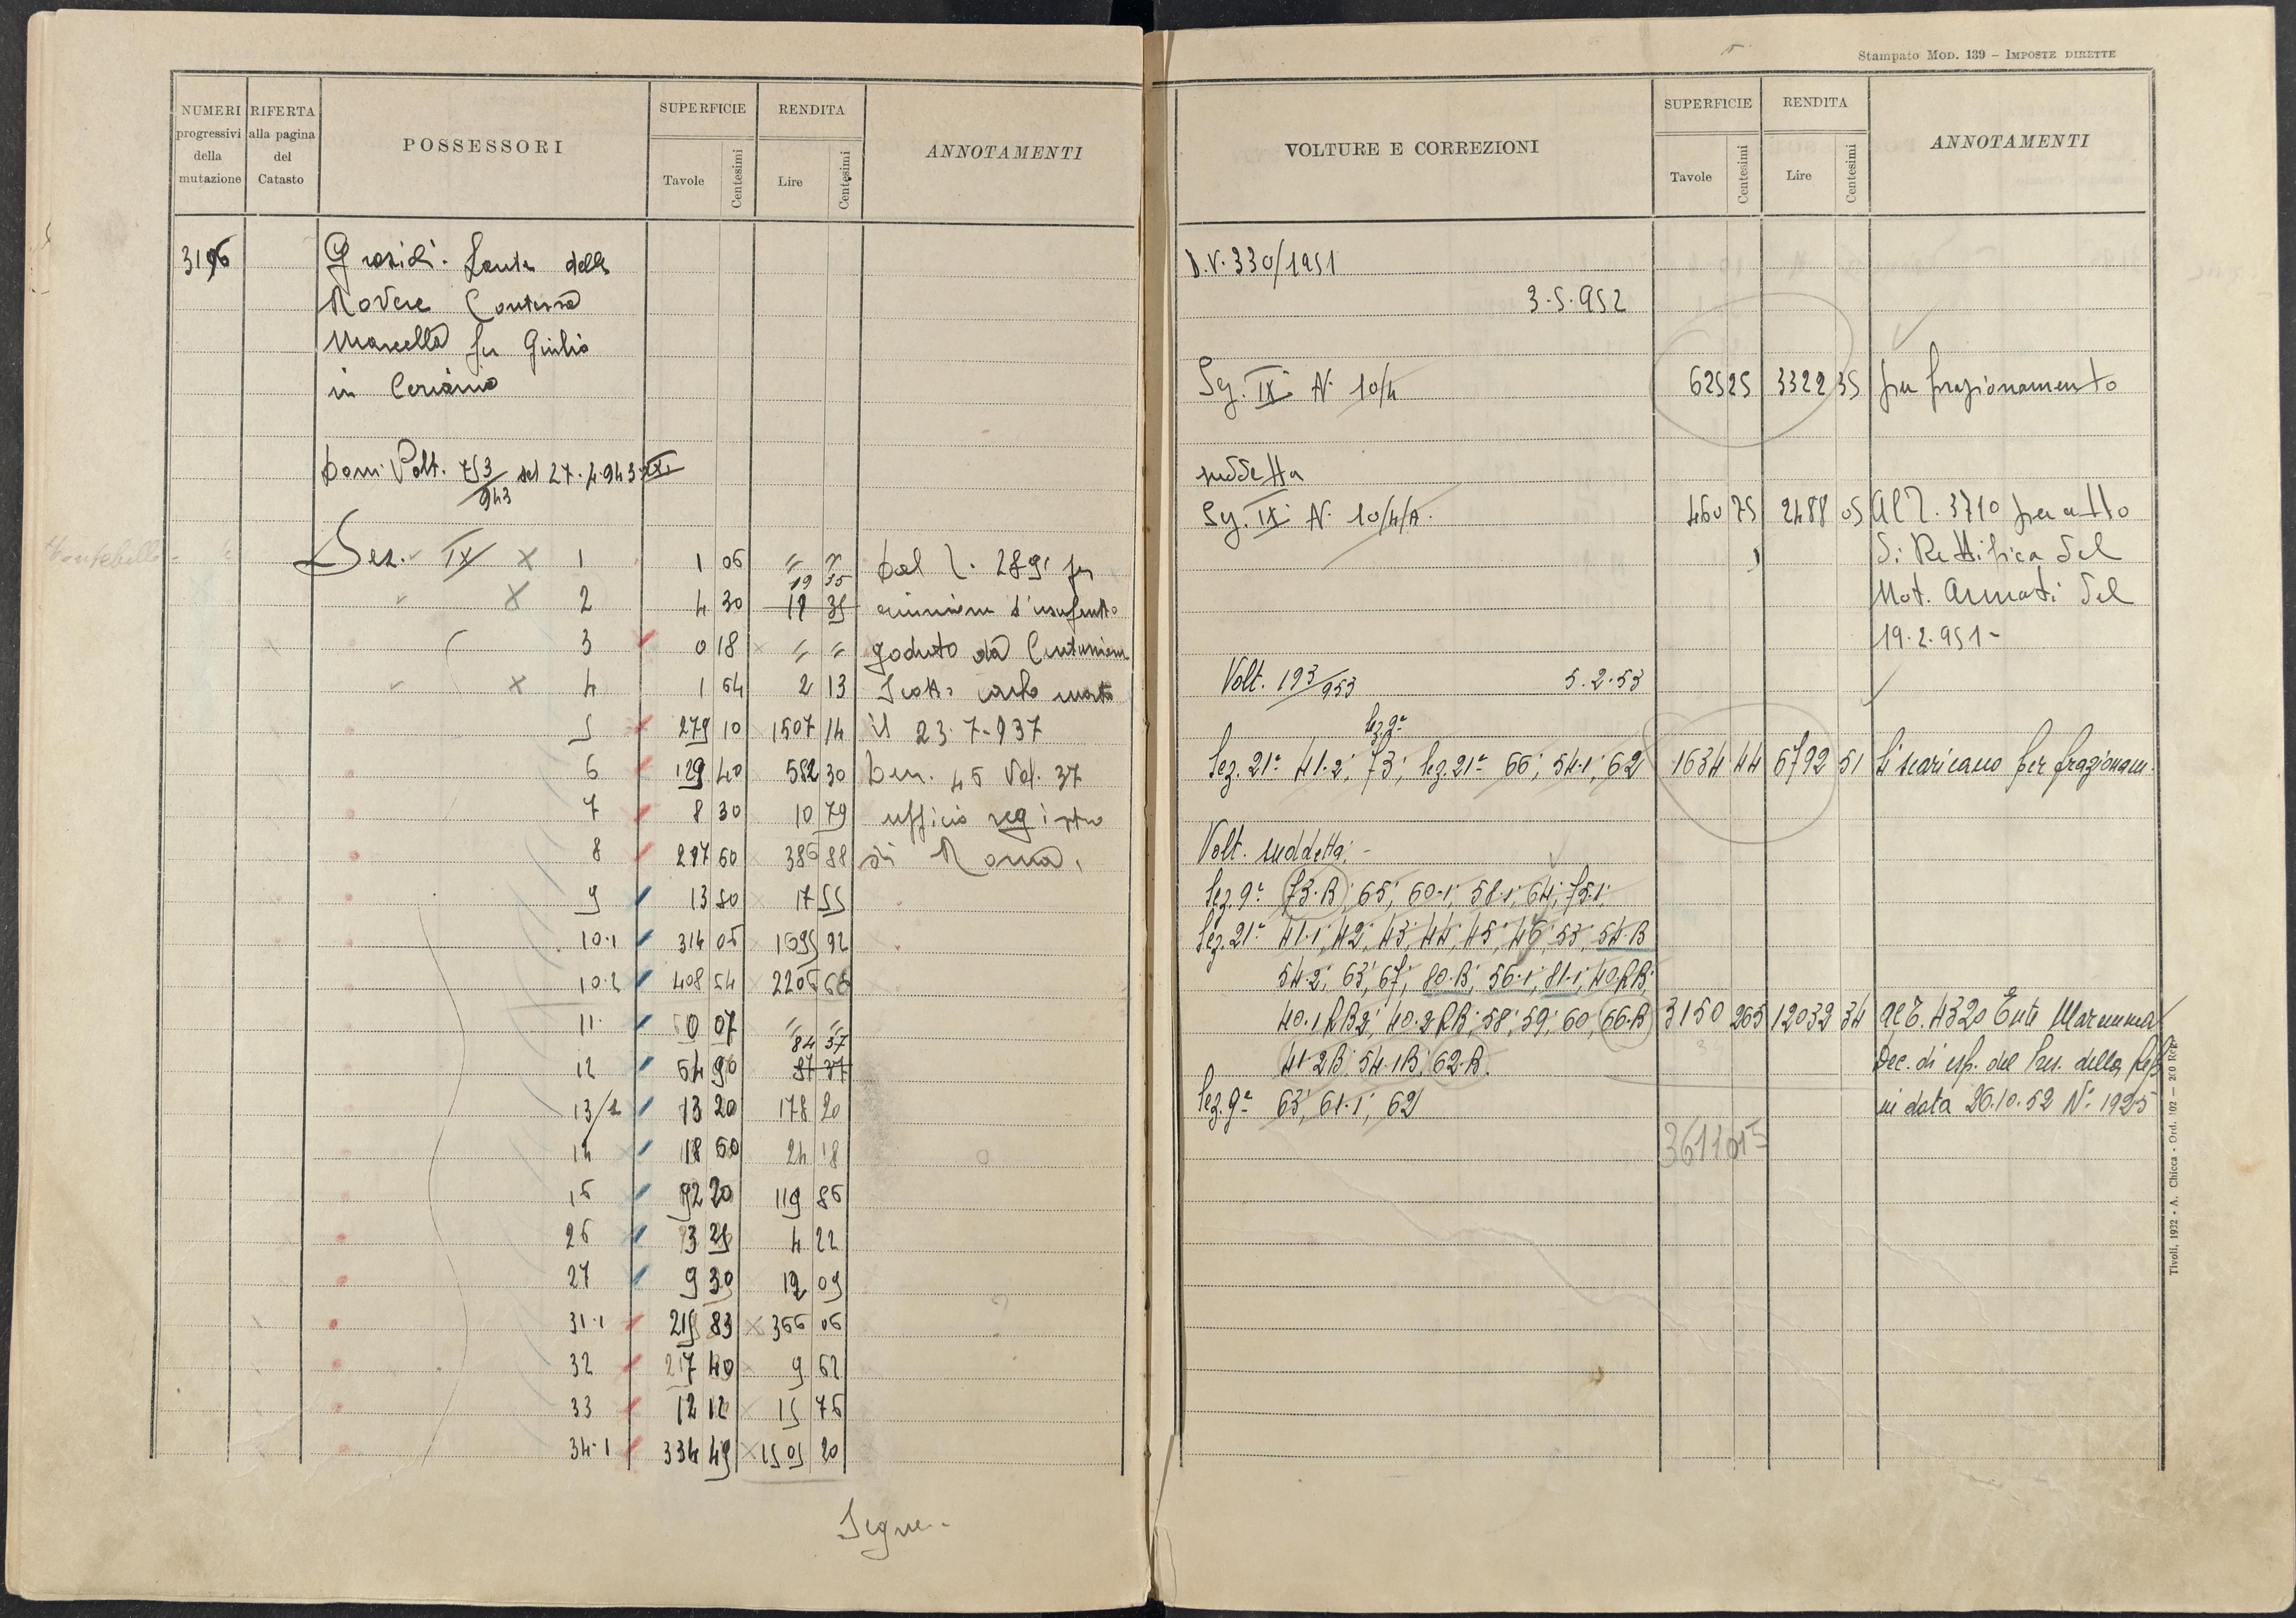 Stampato MOD. 139 – IMPOSTE DIRETTE
NUMERI progressivi della mutazione
RIFERTA alla pagina del Catasto
POSSESSORI
SUPERFICIE
Tavole Centesimi
RENDITA
Lire Centesimi
ANNOTAMENTI
3196
Lante della
Rovere Contessa
Marcella fu Giulio
in
Dom. Volt. 753/943 del 27.4.943 XXI
Sez. IX × 1 1 06 " " Dal 2891 per
19 35
× 2 4 30 18 35 d'usufrutto
3 0 18 " " goduto da
× 4 1 64 2 13 Scotti Carlo morto
5 279 10 1507 14 il 23.7.937
6 129 40 582 30 Den. 45 Vol. 37
7 8 30 10 79 ufficio registro
8 297 60 386 88 di Roma.
9 13 50 17 55
10.1 314 05 1695 92
10.2 408 54 2206 68
11. 0 07 " "
84 37
12 64 90 87 37
13/2 13 20 178 20
14 18 60 24 18
15 92 20 119 86
26 3 25 4 22
27 9 30 12 09
31.1 215 83 × 366 06
32 7 40 9 62
33 12 12 15 76
34.1 334 49 × 1505 20
Segue.
VOLTURE E CORREZIONI
SUPERFICIE
Tavole Centesimi
RENDITA
Lire Centesimi
ANNOTAMENTI
D.V. 330/1951
3.5.952
Sez. IX N. 10/4 625 25 3322 35 per frazionamento
suddetta
Sez. IX N. 10/4/A. 460 75 2488 05 Al 3710 per atto
di Rettifica del
Not. del
19.2.951-
Volt. 193/953 5.2.53
Sez. 9ª
Sez. 21ª 41.2; 73; Sez. 21ª 66; 54.1; 62 1634 44 6792 51 Si scaricano per frazionam.
Volt. suddetta: -
Sez. 9ª 73.B; 65; 60.1; 58.1; 64; 75.1;
Sez. 21ª 41.1; 42; 43; 44; 45; 46; 53; 54.B
54.2; 63; 67; 80.B; 56.1; 81.1; 40.RB;
40.1RB2; 40.2RB; 58; 59; 60; 66.B 3150 265 12032 34 Al 4320 Ente Maremma
41.2B; 54.1B; 62.B. Dec. di esp. del Pres. della Rep.
Sez. 9ª 63; 61.1; 62 in data 26.10.52 N. 1925
3611015
Tivoli, 1932 - A. Chicca - Ord.